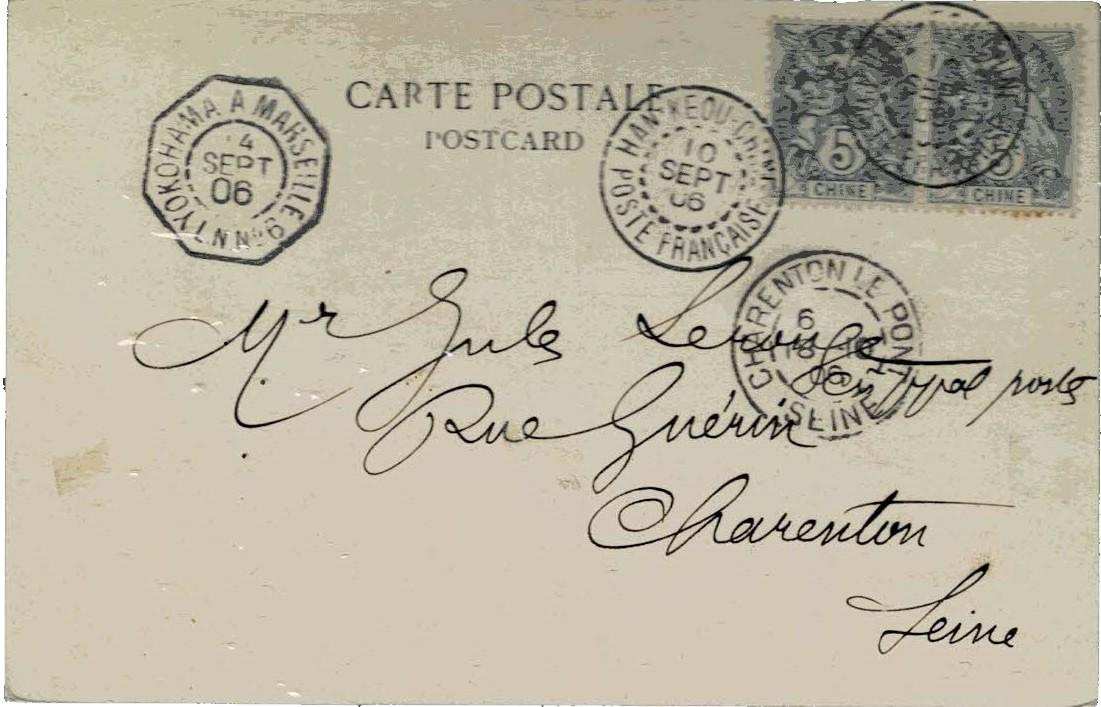 CARTE POSTALE
POSTCARD
YOKOHAMA A MARSEILLE
4
SEPT
06
L.N Nº6
HAN-KEOU-CHINE
10
SEPT
06
POSTE FRANÇAISE
5
CHINE
5
CHINE
CHARENTON LE PONT
6
06
SEINE
Mr Jules Lerouge
poste
Rue Guérin
Charenton
Seine